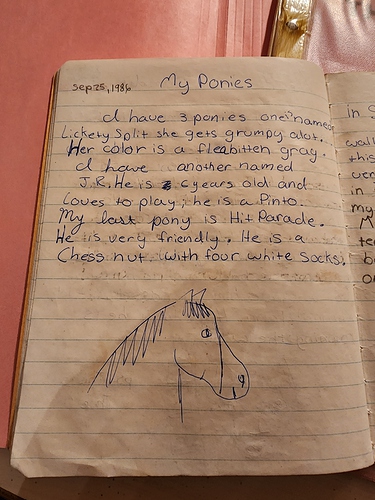 Sep 25, 1986
My Ponies
I have 3 ponies one named
Lickety Split she gets grumpy alot.
Her color is a fleabitten gray.
I have another named
J.R. He is 6 years old and
loves to play; he is a Pinto.
My last pony is Hit Parade.
He is very friendly. He is a
Chess nut with four white socks.
in S
wall
this
in
my